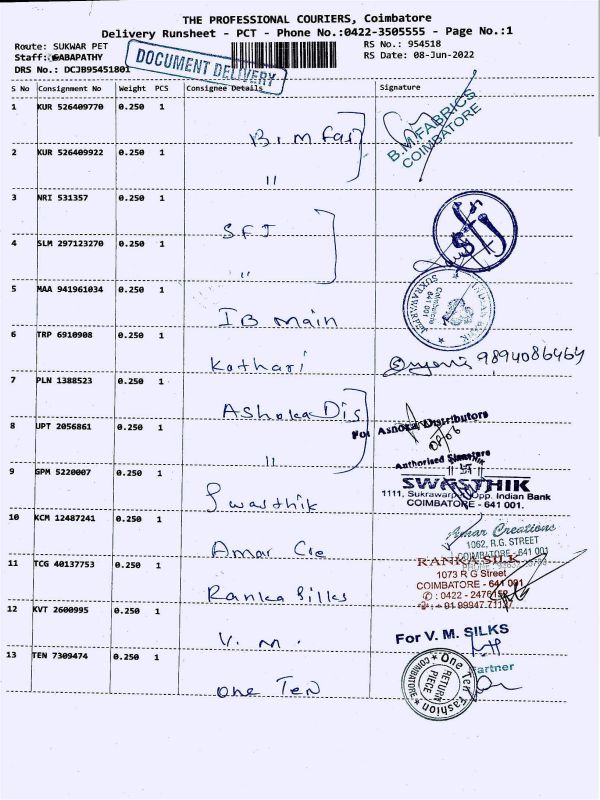 THE PROFESSIONAL COURIERS, Coimbatore
Delivery Runsheet - PCT - Phone No.:0422-3505555 - Page No.:1
Route: SUKWAR PET
RS No.: 954518
Staff: SABAPATHY
RS Date: 08-Jun-2022
DRS No.: DCJB95451801
DOCUMENT DELIVERY
S No Consignment No Weight PCS Consignee Details Signature
1 KUR 526409770 0.250 1 B.M.Fas
B.M.FABRICS
COIMBATORE
2 KUR 526409922 0.250 1 "
3 NRI 531357 0.250 1 SFJ
SFJ
4 SLM 297123270 0.250 1 "
5 MAA 941961034 0.250 1 IB main
INDIAN BANK
SUKRAWARPET
Coimbatore
641 001
6 TRP 6910908 0.250 1 Kothari
9894086464
7 PLN 1388523 0.250 1 Ashoka Dis
For Ashoka Distributors
8 UPT 2056861 0.250 1 "
Authorised Signature
9 GPM 5220007 0.250 1 Swasthik
SWASTHIK
1111, Sukrawarpet, Opp. Indian Bank
COIMBATORE - 641 001.
10 KCM 12487241 0.250 1 Amar Cre
Amar Creations
1062, R.G. STREET
COIMBATORE - 641 001
11 TCG 40137753 0.250 1 Ranka Silks
RANKA SILK
1073 R G Street
COIMBATORE - 641 001
12 KVT 2600995 0.250 1 V.M.
For V. M. SILKS
Partner
13 TEN 7309474 0.250 1 One Ten
One Ten Fashion
COIMBATORE
RETURN
PIECE